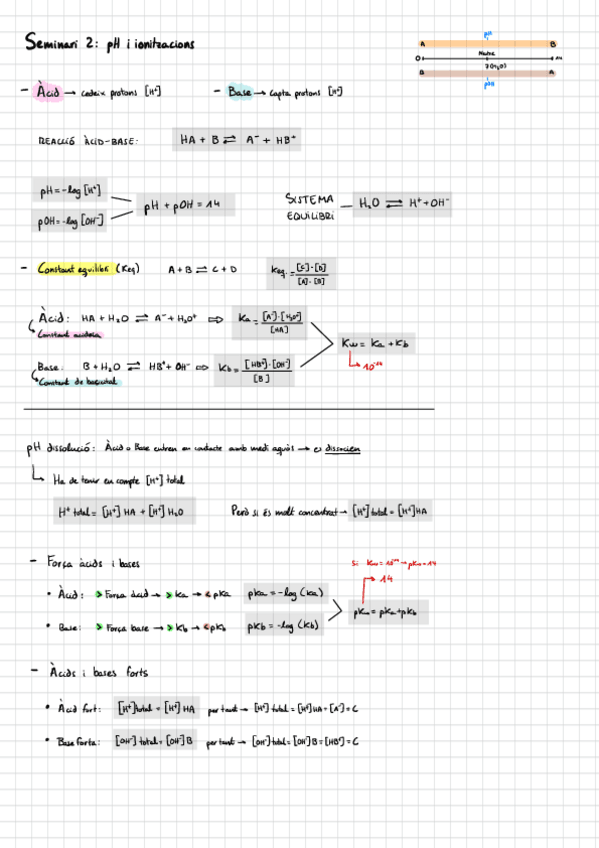 Seminari 2: pH i ionitzacions
pH
A B
Neutre
0 14
7 (H₂O)
B A
pOH
- Àcid → cedeix protons [H⁺] - Base → capta protons [H⁺]
REACCIÓ ÀCID-BASE: HA + B ⇌ A⁻ + HB⁺
pH = -log [H⁺]
pOH = -log [OH⁻]
pH + pOH = 14
SISTEMA EQUILIBRI — H₂O ⇌ H⁺ + OH⁻
- Constant equilibri (Keq) A + B ⇌ C + D Keq = [C]·[D] / [A]·[B]
Àcid: HA + H₂O ⇌ A⁻ + H₃O⁺ ⇒ Ka = [A⁻]·[H₃O⁺] / [HA]
Constant acidesa
Kw = Ka + Kb
10⁻¹⁴
Base: B + H₂O ⇌ HB⁺ + OH⁻ ⇒ Kb = [HB⁺]·[OH⁻] / [B]
Constant de basicitat
pH dissolució: Àcid o Base entren en contacte amb medi aquós → es dissocien
Ha de tenir en compte [H⁺] total
H⁺ total = [H⁺] HA + [H⁺] H₂O Però si és molt concentrat → [H⁺] total = [H⁺] HA
- Força àcids i bases
Si Kw = 10⁻¹⁴ → pKw = 14
• Àcid: > Força àcid → > Ka → < pKa pKa = -log (Ka)
14
pKw = pKa + pKb
• Base: > Força base → > Kb → < pKb pKb = -log (Kb)
- Àcids i bases forts
• Àcid fort: [H⁺] total = [H⁺] HA per tant → [H⁺] total = [H⁺] HA = [A⁻] = C
• Base forta: [OH⁻] total = [OH⁻] B per tant → [OH⁻] total = [OH⁻] B = [HB⁺] = C